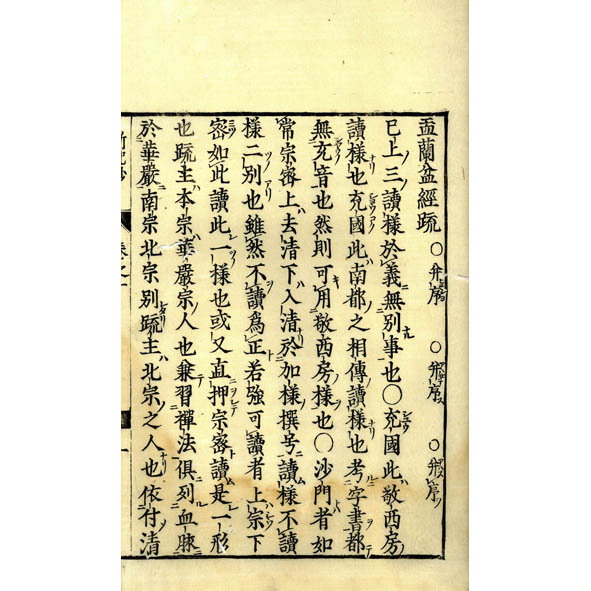 盂蘭盆經疏○并序○并序○并序
已上三讀樣於義無別事也○充國此敬西房
讀樣也充國此南都之相傳讀樣也考字書都
無充音也然則可用敬西房樣也○沙門者如
常宗密上去清下入清於加樣撰号讀樣不讀
樣二別也雖然不讀爲正若強可讀者上宗下
密如此讀此一樣也或又直押宗密讀是一形
也疏主本宗華嚴宗人也兼習禪法俱列血脉
於華嚴南宗北宗別疏主北宗之人也依付清